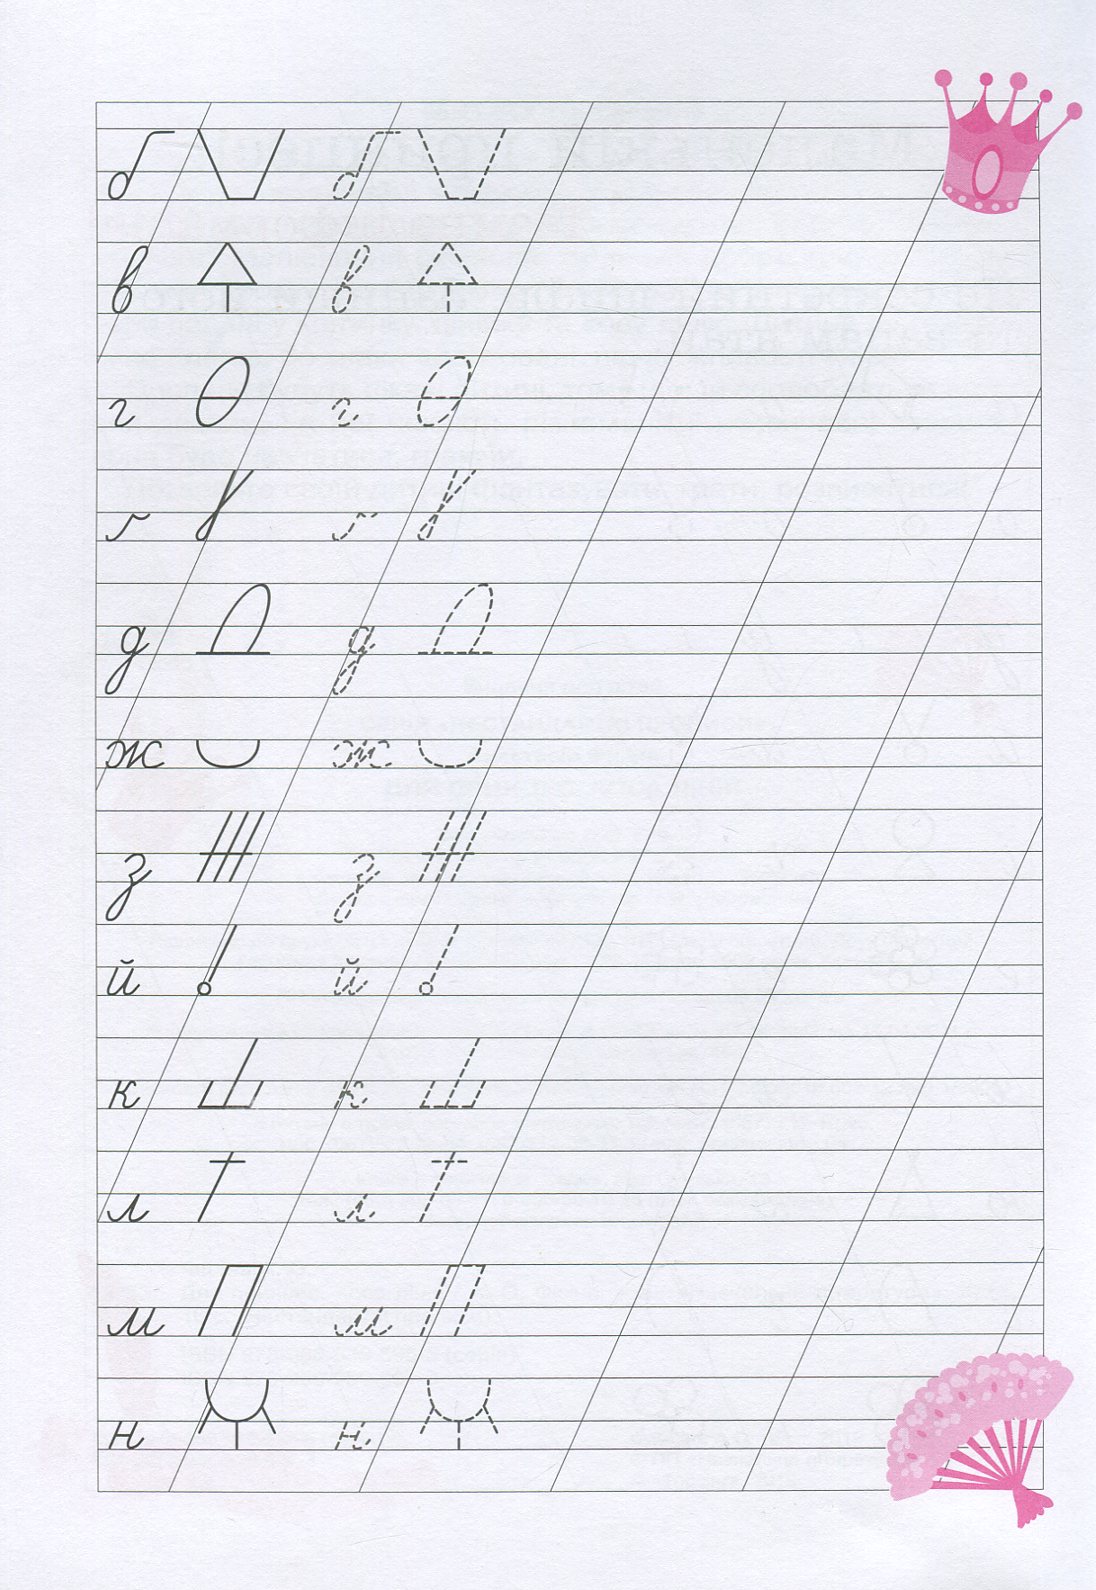 б б
в в
г г
ґ ґ
д д
ж ж
з з
й й
к к
л л
м м
н н